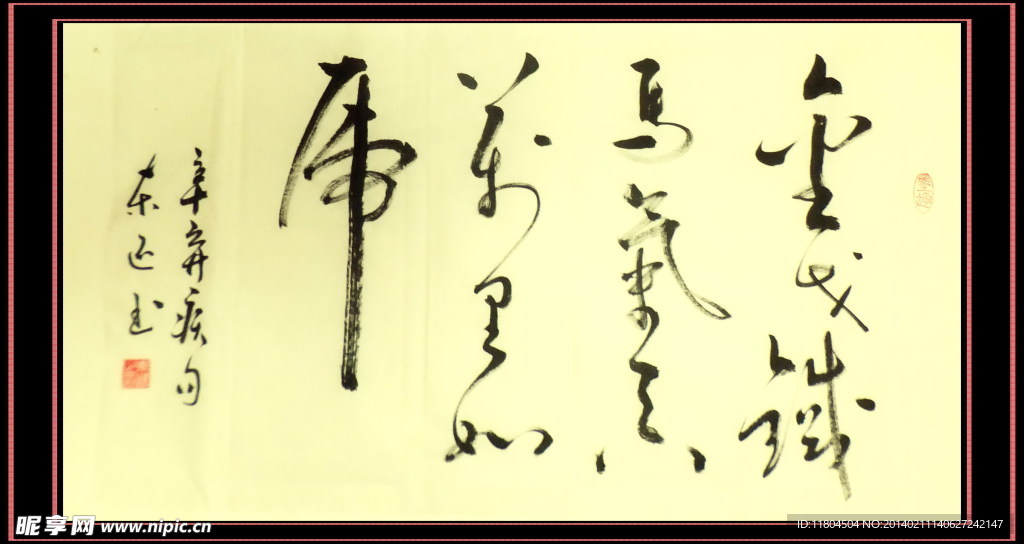 金戈鐵
馬氣吞
萬里如
虎
辛弃疾句
书
昵享网 www.nipic.cn
ID:11804504 NO:20140211140627242147